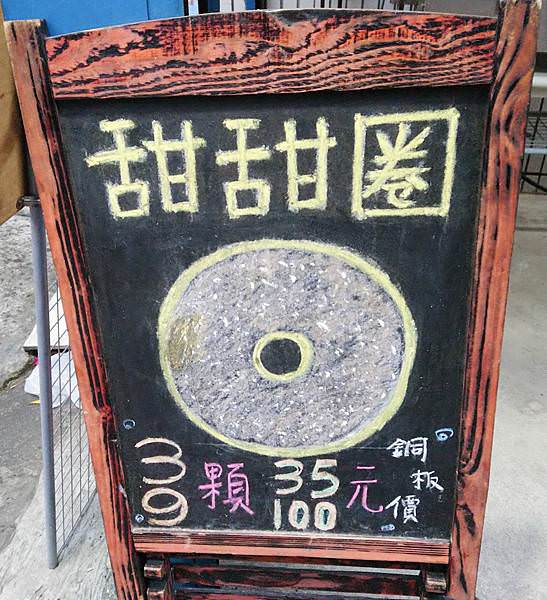 甜甜圈
3顆35元
9顆100元
銅板價